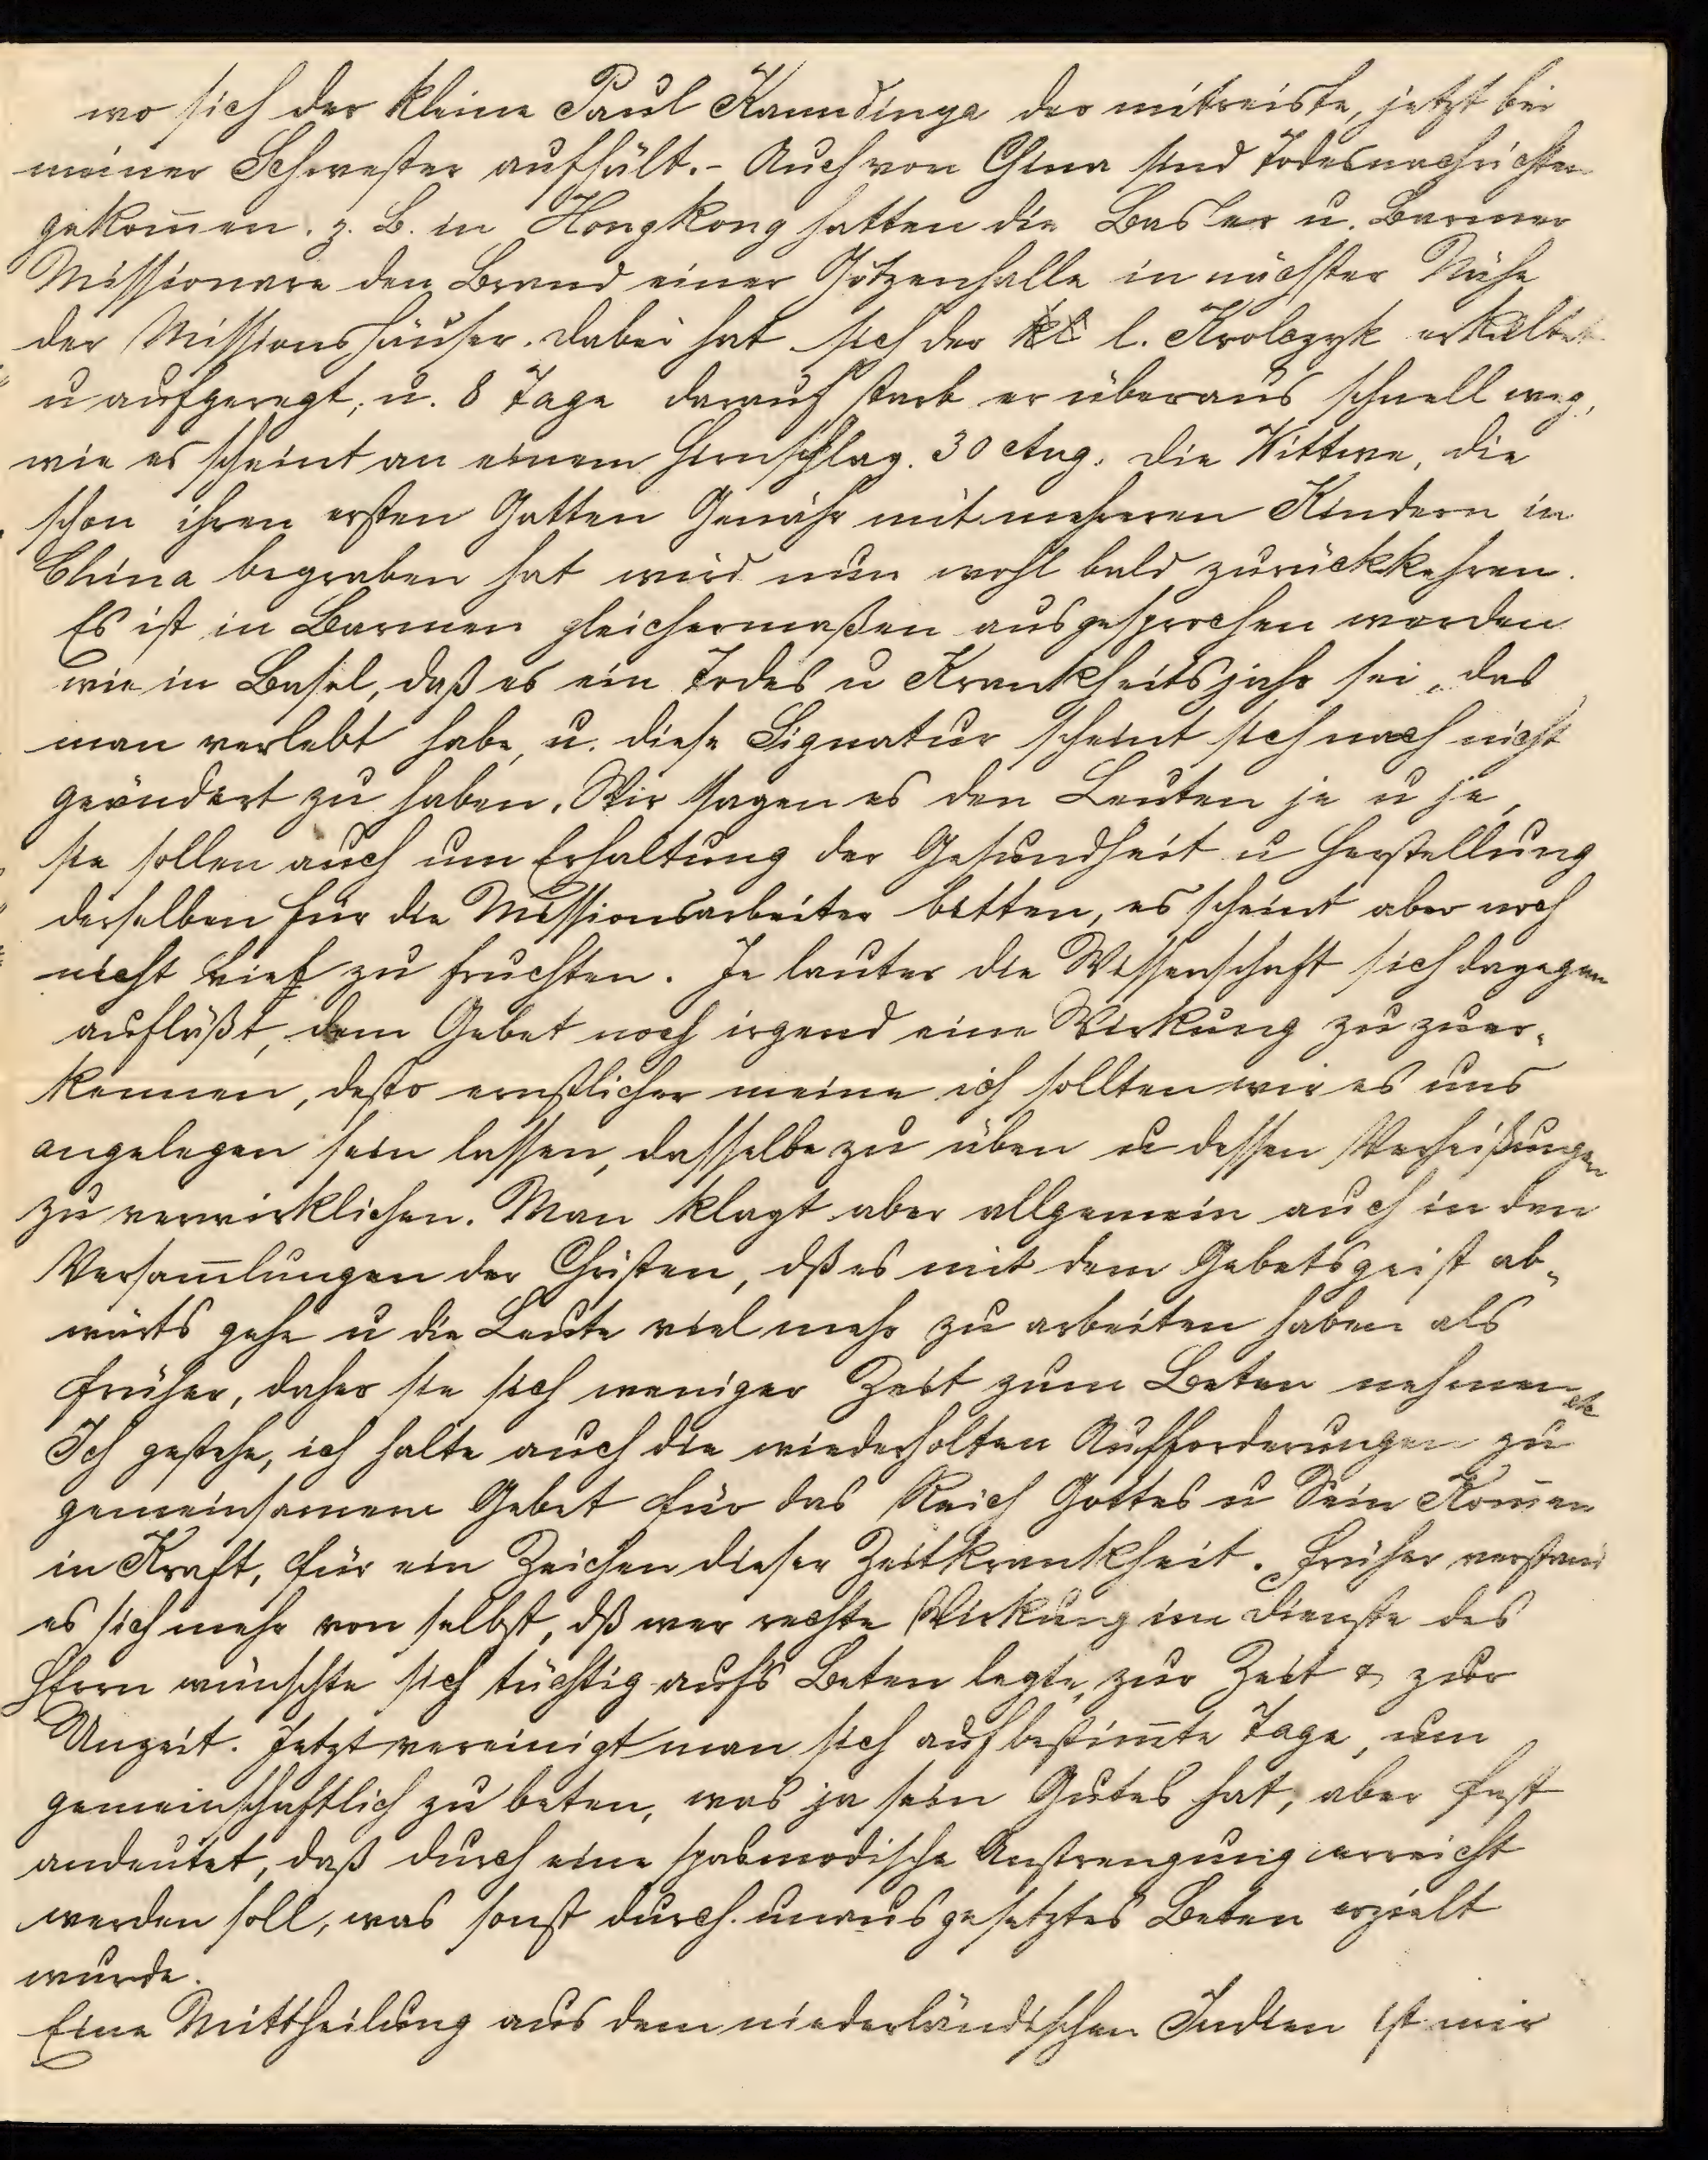 wo sich der kleine Paul Kaundinya der mitreiste, jetzt bei
meiner Schwester aufhält. - Auch von China sind Todesnachrichten
gekom̅en. z. B. in Hongkong hatten die Basler u. Barmer
Missionare den Brand einer Götzenhalle in nächster Nähe
der Missionshäuser. Dabei hat sich der l. Krolczyk erkältet
u aufgeregt, u. 8 Tage darauf starb er überaus schnell weg,
wie es scheint an einem Hirnschlag. 30 Aug. Die Wittwe, die
schon ihren ersten Gatten Genähr mit mehreren Kindern in
China begraben hat wird nun wohl bald zurückkehren.
Es ist in Barmen gleichermaßen ausgesprochen worden
wie in Basel, daß es ein Todes u Krankheitsjahr sei, das
man verlebt habe, u. diese Signatur scheint sich noch nicht
geändert zu haben. Wir sagen es den Leuten je u je,
sie sollen auch um Erhaltung der Gesundheit u Herstellung
derselben für die Missionsarbeiter bitten, es scheint aber noch
nicht tief zu fruchten. Je lauter die Wissenschaft sich dagegen
aufläßt, dem Gebet noch irgend eine Wirkung zu zuer-
kennen, desto ernstlicher meine ich sollten wir es uns
angelegen sein lassen, dasselbe zu üben u dessen Verheißungen
zu verwirklichen. Man klagt aber allgemein auch in den
Versam̅lungen der Christen, dß es mit dem Gebetsgeist ab-
wärts gehe u die Leute viel mehr zu arbeiten haben als
früher, daher sie sich weniger Zeit zum Beten nehmen etc
Ich gestehe, ich halte auch die wiederholten Aufforderungen zu
gemeinsamem Gebet für das Reich Gottes u Sein Kom̅en
in Kraft, für ein Zeichen dieser Zeitkrankheit. Früher verstand
es sich mehr von selbst, dß wer rechte Wirkung im Dienste des
HErrn wünschte sich tüchtig aufs Beten legte, zur Zeit & zur
Unzeit. Jetzt vereinigt man sich auf bestim̅te Tage, um
gemeinschaftlich zu beten, was ja sein Gutes hat, aber fast
andeutet, daß durch eine spasmodische Anstrengung erreicht
werden soll, was sonst durch unausgesetztes Beten erzielt
wurde.
Eine Mittheilung aus dem niederländischen Indien ist mir